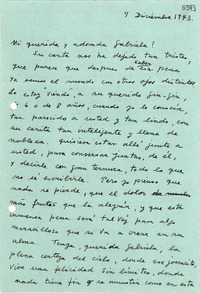 4 Diciembre 1943.
Mi querida y adorada Gabriela!
Su carta nos ha dejado tan tristes,
que parece que después de esa pena
ya vemos el mundo con otros ojos distintos
Lo estoy viendo, a su querido Jin-Jin,
6 o de 8 años, cuando yo le conocía,
tan parecido a usted y tan lindo, con
su carita tan inteligente y llena de
nobleza. quisiera estar allí junto a
usted, para conversar juntas, de él,
y decirle con gran ternura, todo lo que
no sé escribirle. Pero yo pienso que
nada se pierde, que el dolor da
más frutos que la alegría, y que esta
inmensa pena será tal vez para algo
maravilloso que se va a crear en su
alma. Tenga, querida Gabriela, la
plena certeza del cielo, donde ese
vive una felicidad sin límites, donde
nada tiene fin y se muestra como en esta